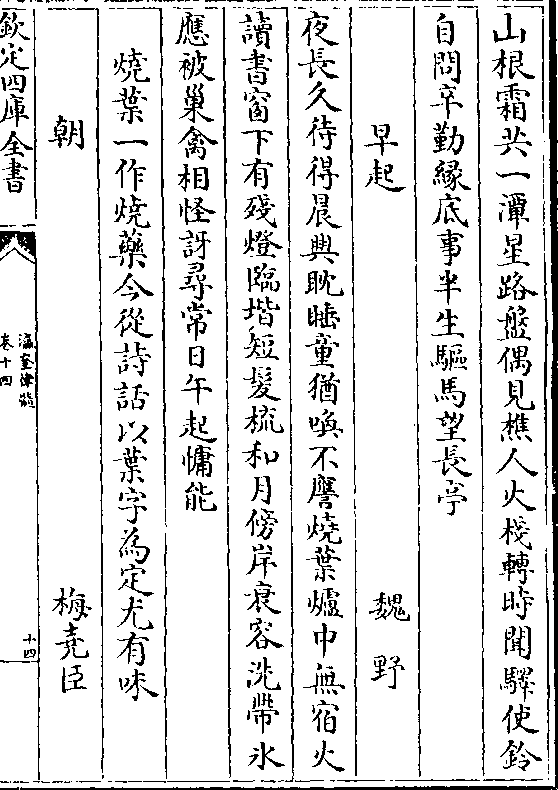 山根霜共一潭星路盤偶見樵人火棧轉時聞驛使鈴
自問卒勤緣底事半生驅馬望長亭
早起　魏野
夜長久待得晨興耽睡童猶喚不譍燒葉爐中無宿火
讀書窗下有殘燈臨堦短髮梳和月傍岸衰容洗帶氷
應被巢禽相怪訝尋常日午起慵能
燒葉一作燒藥今從詩話以葉字為定尤有味
朝　梅堯臣
欽定四庫全書
瀛奎律髓
卷十四
十四